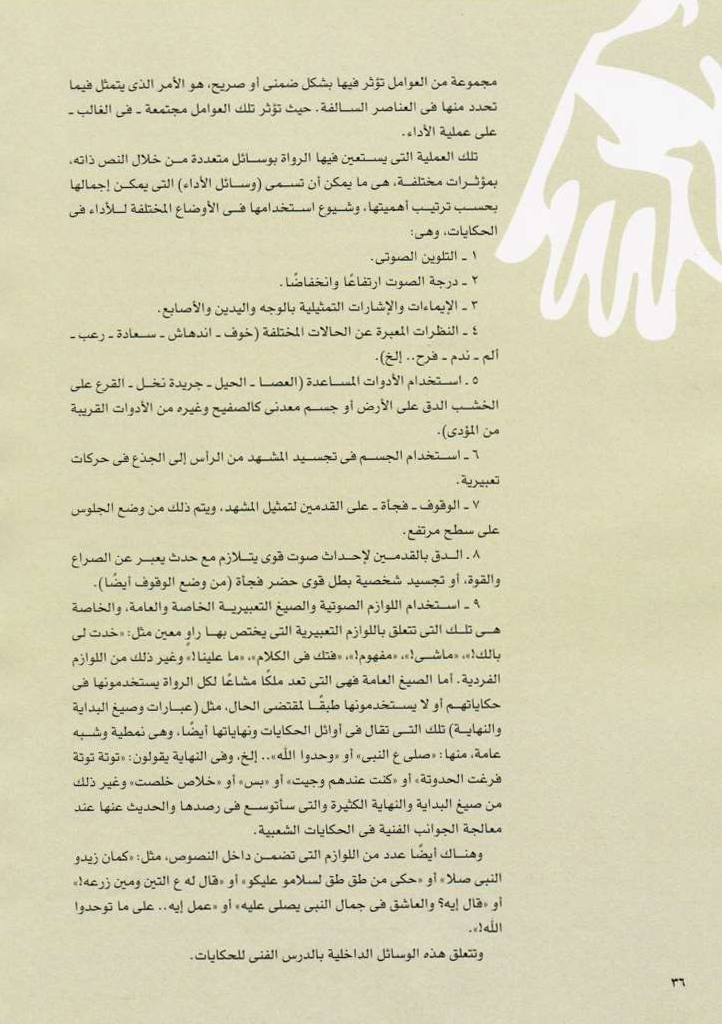 مجموعة من العوامل تؤثر فيها بشكل ضمنى أو صريح، هو الأمر الذى يتمثل فيما
تحدد منها فى العناصر السالفة. حيث تؤثر تلك العوامل مجتمعة ـ فى الغالب ـ
على عملية الأداء.
تلك العملية التى يستعين فيها الرواة بوسائل متعددة من خلال النص ذاته،
بمؤثرات مختلفة، هى ما يمكن أن تسمى (وسائل الأداء) التى يمكن إجمالها
بحسب ترتيب أهميتها، وشيوع استخدامها فى الأوضاع المختلفة للأداء فى
الحكايات، وهى:
١ ـ التلوين الصوتى.
٢ ـ درجة الصوت ارتفاعًا وانخفاضًا.
٣ ـ الإيماءات والإشارات التمثيلية بالوجه واليدين والأصابع.
٤ ـ النظرات المعبرة عن الحالات المختلفة (خوف ـ اندهاش ـ سعادة ـ رعب ـ
ألم ـ ندم ـ فرح.. إلخ).
٥ ـ استخدام الأدوات المساعدة (العصا ـ الحيل ـ جريدة نخل ـ القرع على
الخشب الدق على الأرض أو جسم معدنى كالصفيح وغيره من الأدوات القريبة
من المؤدى).
٦ ـ استخدام الجسم فى تجسيد المشهد من الرأس إلى الجذع فى حركات
تعبيرية.
٧ ـ الوقوف ـ فجأة ـ على القدمين لتمثيل المشهد، ويتم ذلك من وضع الجلوس
على سطح مرتفع.
٨ ـ الدق بالقدمين لإحداث صوت قوى يتلازم مع حدث يعبر عن الصراع
والقوة، أو تجسيد شخصية بطل قوى حضر فجأة (من وضع الوقوف أيضًا).
٩ ـ استخدام اللوازم الصوتية والصيغ التعبيرية الخاصة والعامة، والخاصة
هى تلك التى تتعلق باللوازم التعبيرية التى يختص بها راوٍ معين مثل: «خدت لى
بالك!»، «ماشى!»، «مفهوم!»، «فتك فى الكلام»، «ما علينا!» وغير ذلك من اللوازم
الفردية. أما الصيغ العامة فهى التى تعد ملكًا مشاعًا لكل الرواة يستخدمونها فى
حكاياتهم أو لا يستخدمونها طبقًا لمقتضى الحال، مثل (عبارات وصيغ البداية
والنهاية) تلك التى تقال فى أوائل الحكايات ونهاياتها أيضًا، وهى نمطية وشبه
عامة، منها: «صلى ع النبى» أو «وحدوا الله».. إلخ، وفى النهاية يقولون: «توتة توتة
فرغت الحدوتة» أو «كنت عندهم وجيت» أو «بس» أو «خلاص خلصت» وغير ذلك
من صيغ البداية والنهاية الكثيرة والتى سأتوسع فى رصدها والحديث عنها عند
معالجة الجوانب الفنية فى الحكايات الشعبية.
وهناك أيضًا عدد من اللوازم التى تضمن داخل النصوص، مثل: «كمان زيدو
النبى صلا» أو «حكى من طق طق لسلامو عليكو» أو «قال له ع التين ومين زرعه!»
أو «قال إيه؟ والعاشق فى جمال النبى يصلى عليه» أو «عمل إيه.. على ما توحدوا
الله!».
وتتعلق هذه الوسائل الداخلية بالدرس الفنى للحكايات.
٣٦